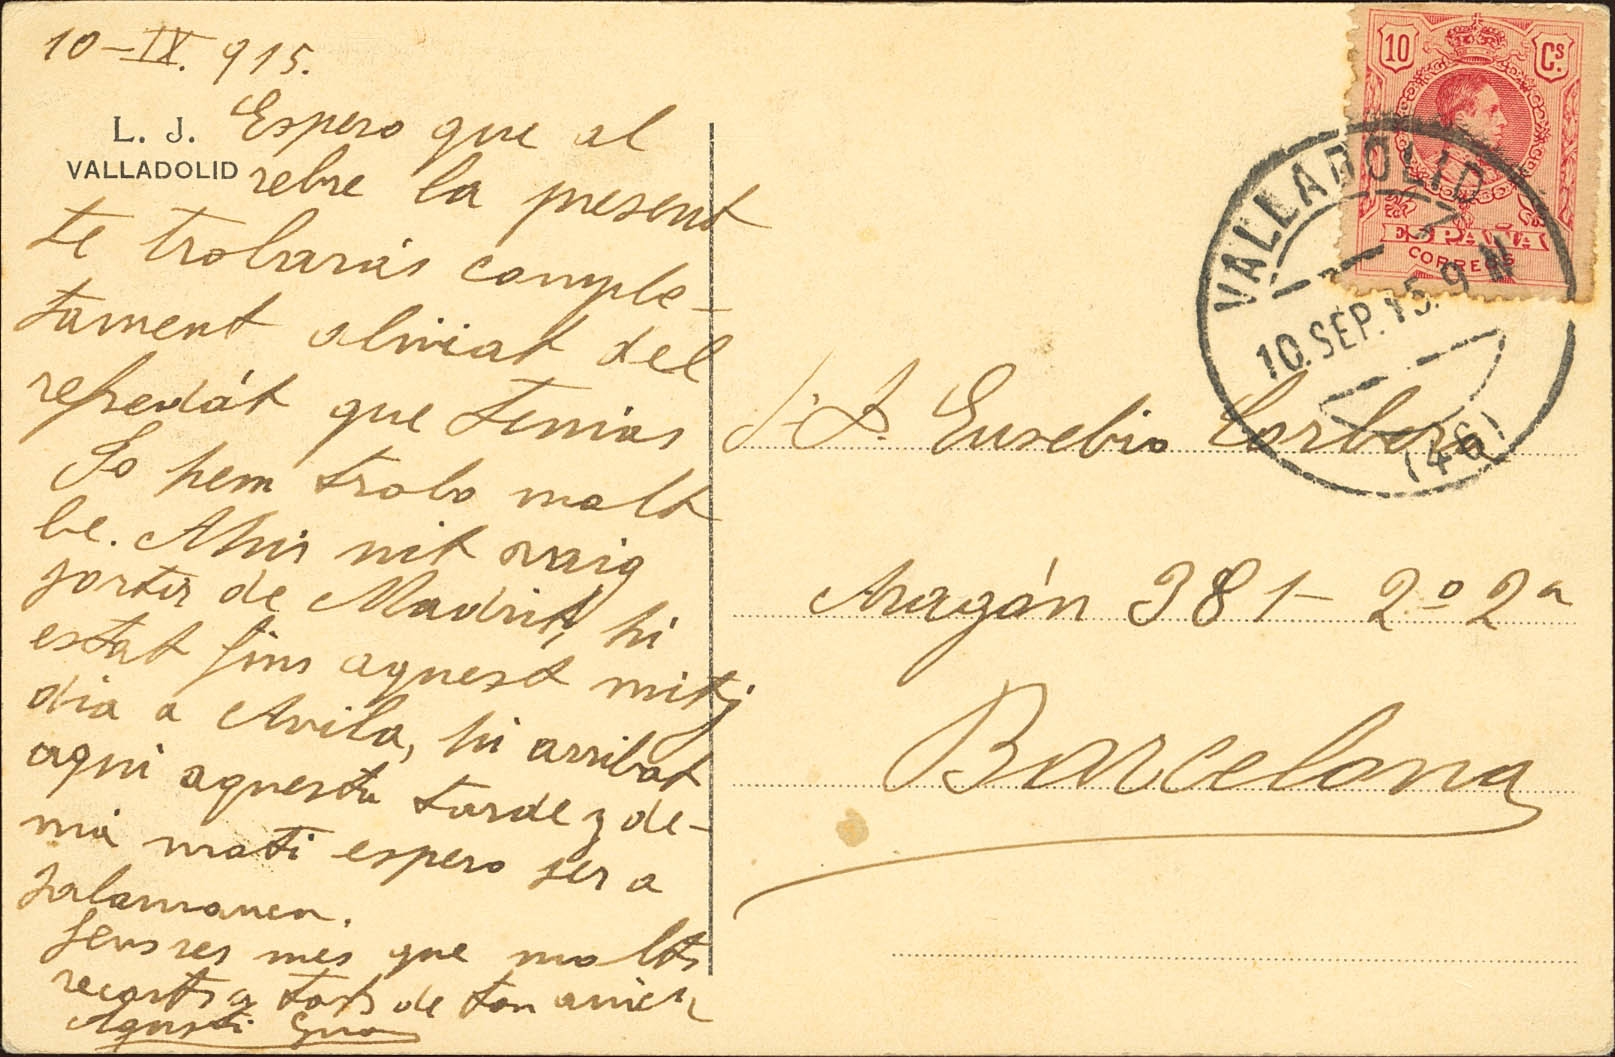 10-IX. 915.
L. J.
VALLADOLID
Espero que al
rebre la present
te trobarás comple-
tament aliviat del
refredát que tenias
Jo hem trobo molt
be. Ahir nit vaig
sortir de Madrit, hi
estat fins aquest mitj
dia a Avila, hi arribat
aqui aquesta tarde y de-
má mati espero ser a
Salamanca.
Sens res més que molts
recorts a tots de ton amich
Agustí
10 Cs.
ESPAÑA
CORREOS
VALLADOLID
10.SEP.15.9N
(46)
Eusebio
Aragón 381-2º 2ª
Barcelona